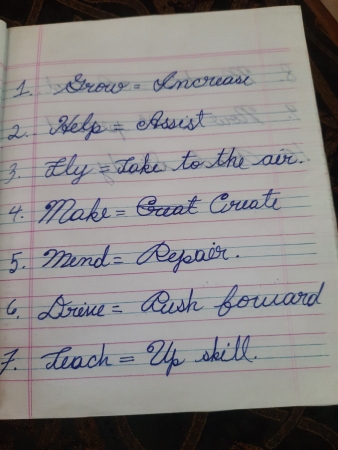 1. Grow = Increase
2. Help = Assist
3. Fly = Take to the air.
4. Make = Creat Create
5. Mend = Repair.
6. Drive = Push forward
7. Teach = Up skill.